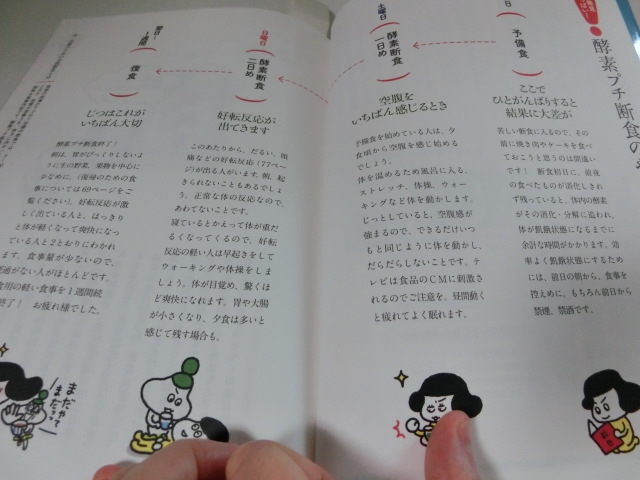 酵素プチ断食の
日
予備食
ここで
ひとがんばりすると
結果に大差が
苦しい断食に入るので、その
前に焼き肉やケーキを食べ
ておこうと思うのは間違い
です！ 断食初日に、前夜
の食べものが消化しきれ
ず残っていると、体内の酵素
がその消化・分解に追われ、
体が飢餓状態になるまでに
余計な時間がかかります。効
率よく飢餓状態にするため
には、前日の朝から、食事を
控えめに。もちろん前日から
禁煙、禁酒です。
土曜日
酵素断食
一日め
空腹を
いちばん感じるとき
予備食を始めている人は、夕
食頃から空腹を感じ始める
でしょう。
体を温めるため風呂に入る、
ストレッチ、体操、ウォー
キングなど体を動かします。
じっとしていると、空腹感が
強まるので、できるだけいつ
もと同じように体を動かし、
だらだらしないことです。テ
レビは食品のCMに刺激さ
れるのでご注意を。昼間動く
と疲れてよく眠れます。
日曜日
酵素断食
二日め
好転反応が
出てきます
このあたりから、だるい、頭
痛などの好転反応（77ペー
ジ）が出る人がいます。朝、起
きられないこともあるでしょ
う。正常な体の反応なので、
あわてないことです。
寝ているとかえって体が重だ
るくなってくるので、好転
反応の軽い人は早起きをして
ウォーキングや体操をしま
しょう。体が目覚め、驚くほ
ど爽快になれます。胃や大腸
が小さくなり、夕食は多いと
感じて残す場合も。
復食
じつはこれが
いちばん大切
酵素プチ断食終了！
朝は、胃がびっくりしないよ
うに生の野菜、果物を中心に
少なめに。（復帰のための食
事については68ページをご
覧ください）。好転反応が激
しく出ている人と、はっきり
と体が軽くなって爽快にな
っている人と2とおりにわかれ
ます。食事量が少ないので、
便通がない人がほとんどです。
食用の軽い食事を1週間続
終了！ お疲れ様でした。
まだやって
まだ